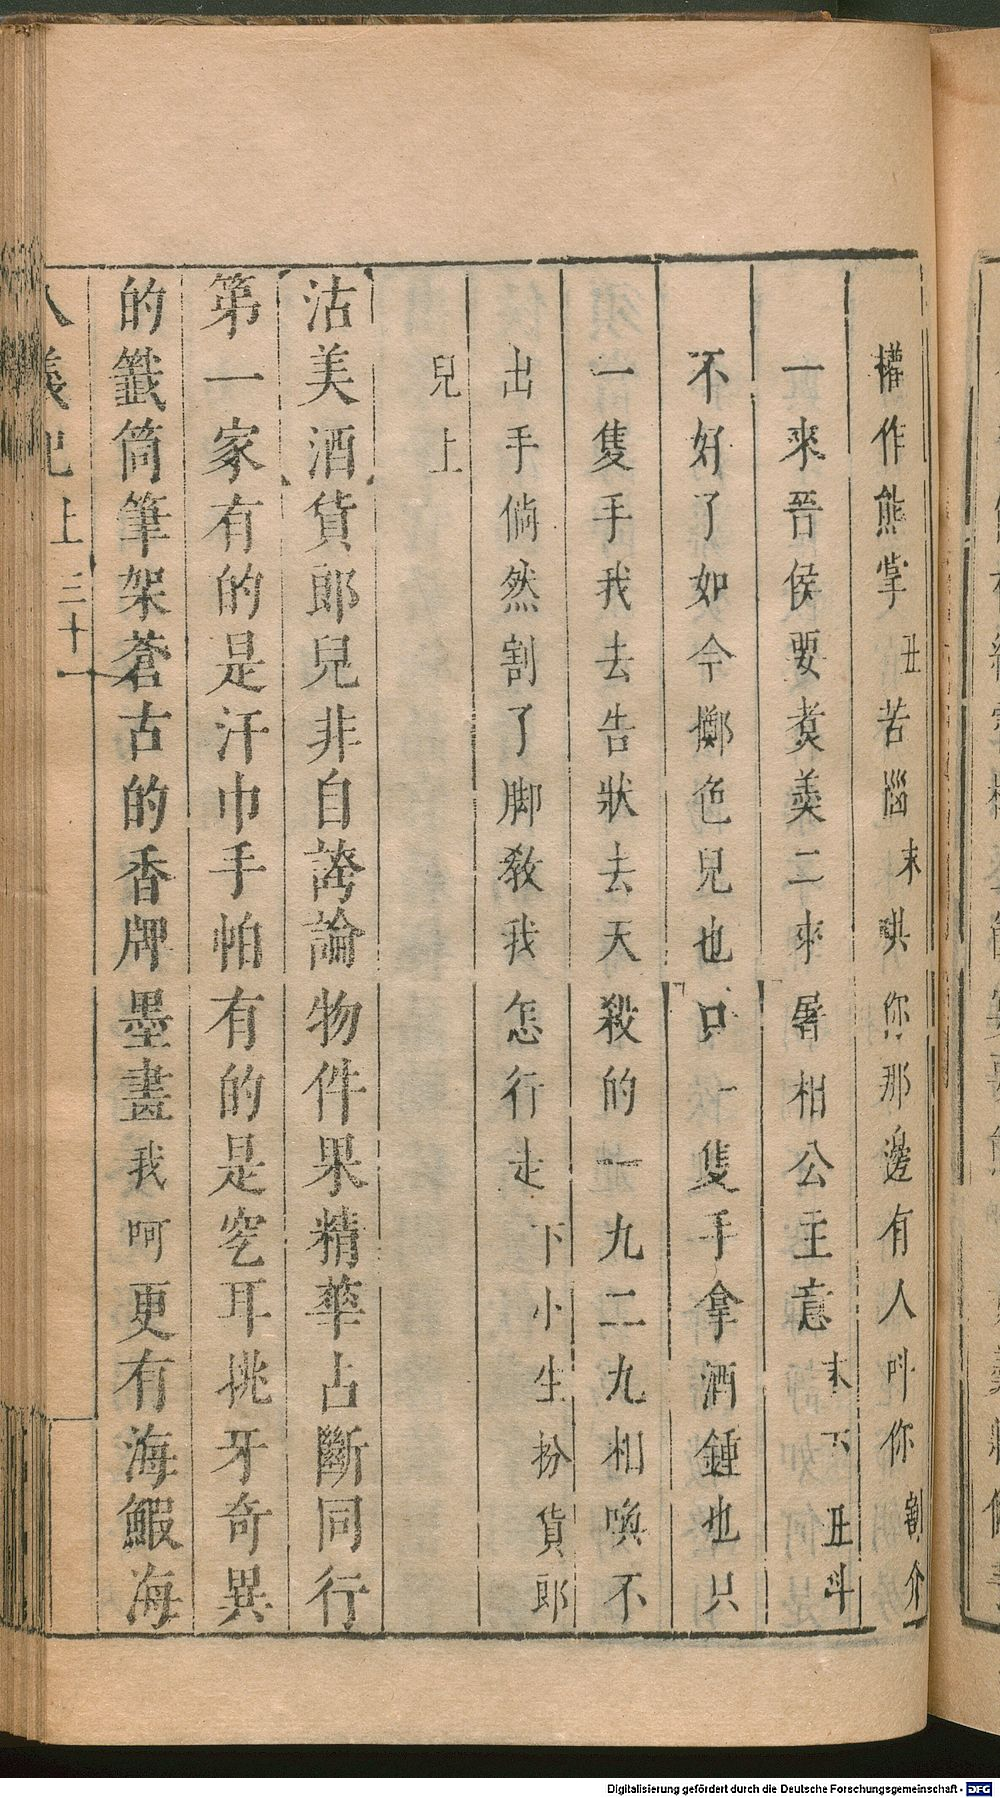 權作熊掌丑苦惱末哄你那邊有人叫你割介
一來晉侯要煑羮二來屠相公主意末下丑斗
不好了如今擲色兒也只一隻手拿酒鍾也只
一隻手我去告狀去天殺的一九二九相喚不
出手倘然割了脚敎我怎行走下小生扮貨郎
兒上
沽美酒貨郎兒非自誇論物件果精華占斷同行
第一家有的是汗巾手帕有的是穵耳挑牙奇異
的籤筒筆架蒼古的香牌墨畫我呵更有海鰕海
八義記上三十一
Digitalisierung gefördert durch die Deutsche Forschungsgemeinschaft - DFG